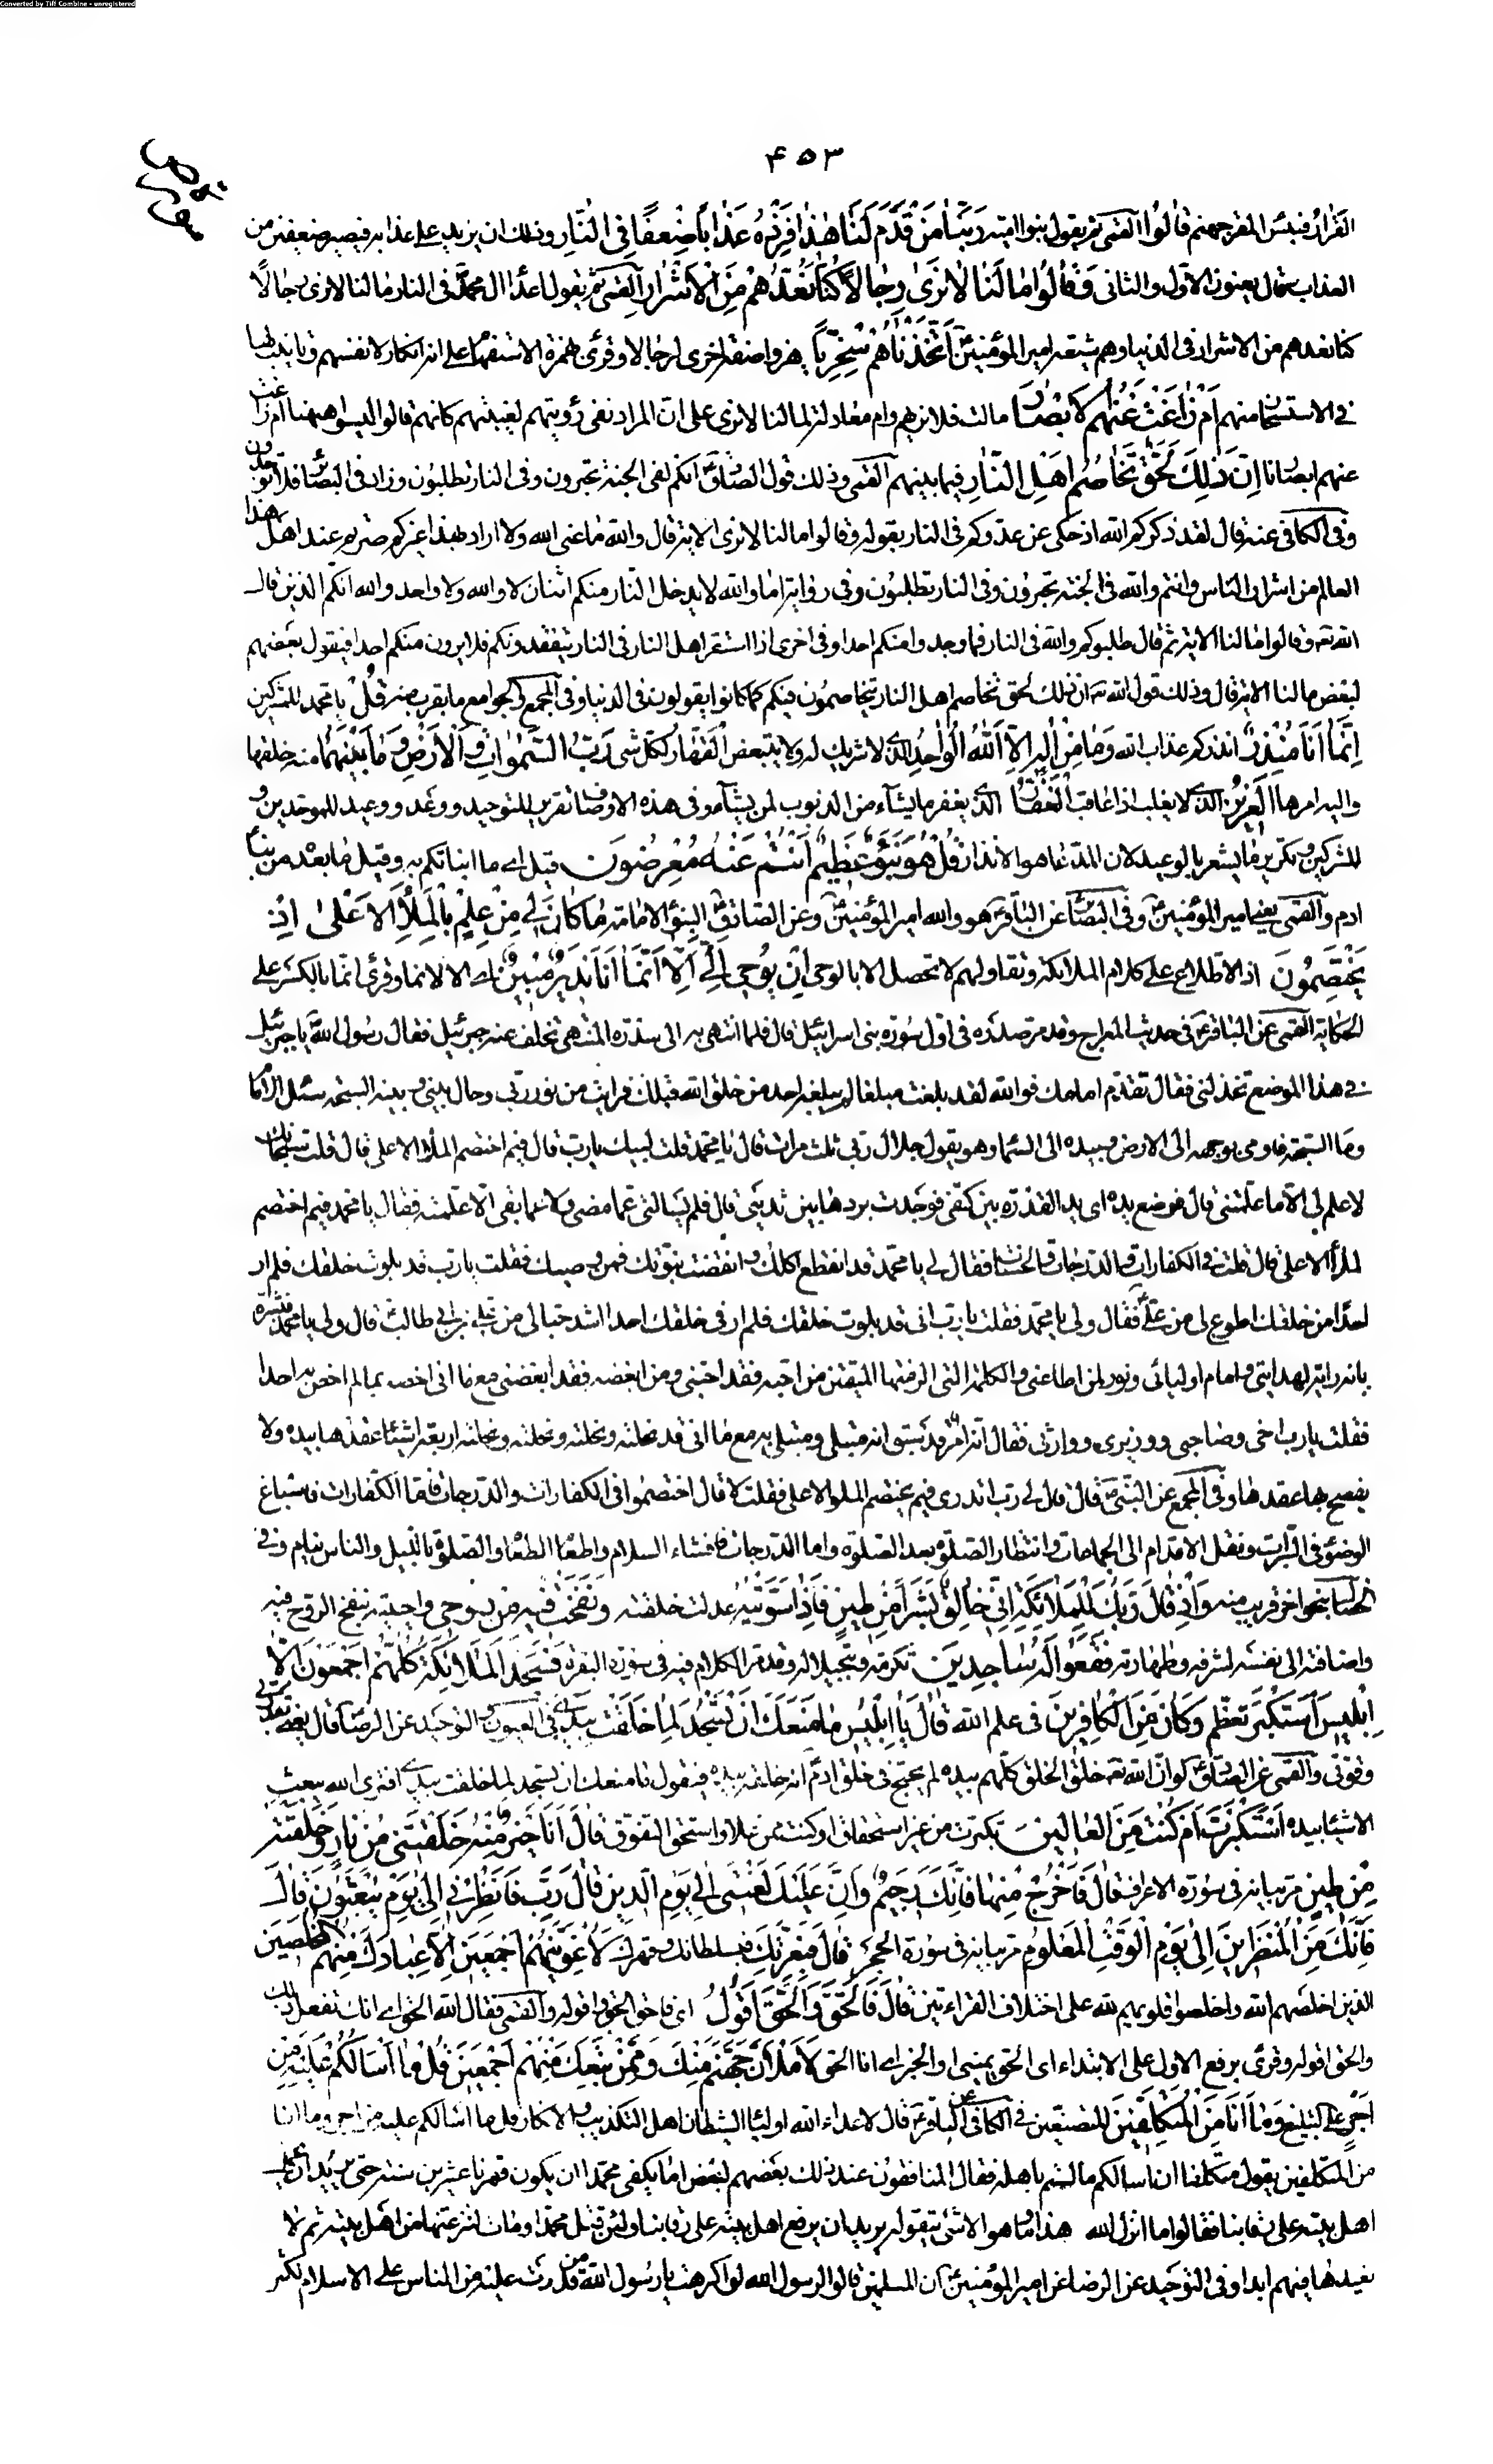 Converted by Tiff Combine - unregistered
۴۵۳
القرار فبئس المقر جهنم قالوا القمی ثم یقول بنوا امیة ربنا من قدم لنا هذا فزده عذابا ضعفا فی النار وذلك ان یزید علی عذابه فیصیر ضعفین من
العذاب شمال یعنون الاول والثانی وقالوا ما لنا لا نری رجالا کنا نعدهم من الاشرار القمی ثم یقول اعداء ال محمد فی النار ما لنا لا نری رجالا
کنا نعدهم من الاشرار فی الدنیا وهم شیعة امیر المؤمنین اتخذناهم سخریا هزوا صفة اخری لرجالا وقرئ بهمزة الاستفهام علی انه انکار لانفسهم وتأنیب لها
فی الاستسخار منهم ام زاغت عنهم الابصار مالت فلا نریهم وام معادلة لما لنا لا نری علی ان المراد نفی رؤیتهم لغیبتهم کانهم قالوا الیسوا ههنا ام زاغت
عنهم ابصارنا ان ذلك لحق تخاصم اهل النار فیما بینهم القمی وذلك قول الصادق انکم لفی الجنة تحبرون وفی النار تطلبون وزاد فی البصائر فلا توجدون
وفی الکافی عنه قال لقد ذکرکم الله اذ حکی عن عدوکم فی النار بقوله وقالوا ما لنا لا نری الایة قال والله ما عنی الله ولا اراد بهذا غیرکم صرتم عند اهل هذا
العالم من اشرار الناس وانتم والله فی الجنة تحبرون وفی النار تطلبون وفی روایة اما والله لا یدخل النار منکم اثنان لا والله ولا واحد والله انکم الذین قال
الله تعه وقالوا ما لنا الایة ثم قال طلبوکم والله فی النار فما وجدوا منکم احدا وفی اخری اذا استقر اهل النار فی النار یتفقدونکم فلا یرون منکم احدا فیقول بعضهم
لبعض ما لنا الایة قال وذلك قول الله ان ذلك لحق تخاصم اهل النار یتخاصمون فیکم کما کانوا یقولون فی الدنیا وفی المجمع والجوامع ما یقرب منه قل یا محمد للمشرکین
انما انا منذر انذرکم عذاب الله وما من اله الا الله الواحد الذی لا شریك له ولا یتبعض القهار لکل شی رب السموات والارض وما بینهما منه خلقها
والیه امرها العزیز الذی لا یغلب اذا عاقب الغفار الذی یغفر ما یشاء من الذنوب لمن یشاء وفی هذه الاوصاف تقریر للتوحید ووعد ووعید للموحدین و
للمشرکین وتکریر ما یشعر بالوعید لان المدعا هو الانذار قل هو نبؤ عظیم انتم عنه معرضون قیل ای ما انبأتکم به وقیل ما بعده من نبأ
ادم والقمی یعنی امیر المؤمنین وفی البصائر عن الباقر هو والله امیر المؤمنین وعن الصادق النبؤ الامامة ما کان لی من علم بالملأ الاعلی اذ
یختصمون اذ الاطلاع علی کلام الملائکة وتقاولهم لا تحصل الا بالوحی ان یوحی الی الا انما انا نذیر مبین ای الا لانما وقرئ انما بالکسر علی
الحکایة القمی عن الباقر فی حدیث المعراج وقد مر صدره فی اول سورة بنی اسرائیل قال فلما انتهی به الی سدرة المنتهی تخلف عنه جبرئیل فقال رسول الله یا جبرئیل
فی هذا الموضع تخذلنی فقال تقدم امامك فوالله لقد بلغت مبلغا لم یبلغه احد من خلق الله قبلك فرایت من نور ربی وحال بینی وبینه السبحة سئل الامام
وما السبحة فاومی بوجهه الی الارض وبیده الی السماء وهو یقول جلال ربی ثلث مرات قال یا محمد قلت لبیك یا رب قال فیم اختصم الملأ الاعلی قال قلت سبحانك
لا علم لی الا ما علمتنی قال فوضع یده ای ید القدرة بین کتفی فوجدت بردها بین ثدیی قال فلم یسالنی عما مضی ولا عما بقی الا علمته فقال یا محمد فیم اختصم
الملأ الاعلی قال قلت فی الکفارات والدرجات والحسنات فقال لی یا محمد قد انقطع اکلك وانقضت نبوتك فمن وصیك فقلت یا رب قد بلوت خلقك فلم ار
احدا من خلقك اطوع لی من علی فقال ولی یا محمد فقلت یا رب انی قد بلوت خلقك فلم ار فی خلقك احدا اشد حبا لی من علی بن ابی طالب قال ولی یا محمد فبشره
بانه رایة لهدایتی وامام اولیائی ونور لمن اطاعنی والکلمة التی الزمتها المتقین من احبه فقد احبنی ومن ابغضه فقد ابغضنی مع ما انی اخصه بما لم اخص به احدا
فقلت یا رب اخی وصاحبی ووزیری ووارثی فقال انه امر قد سبق انه مبتلی ومبتلی به مع ما انی قد نحلته ونحلته ونحلته ونحلته اربعة اشیاء عقدها بیده ولا
یفصح بها عقدها وفی المجمع عن النبی قال قال لی رب اتدری فیم یختصم الملاء الاعلی فقلت لا قال اختصموا فی الکفارات والدرجات فاما الکفارات فاسباغ
الوضوء فی السبرات ونقل الاقدام الی الجماعات وانتظار الصلوة بعد الصلوة واما الدرجات فافشاء السلام واطعام الطعام والصلوة باللیل والناس نیام وفی
الخصال بنحو اخر قریب منه واذ قال ربك للملائکة انی خالق بشرا من طین فاذا سویته عدلت خلقته ونفخت فیه من روحی واحییته بنفخ الروح فیه
واضافته الی نفسه لشرفه وطهارته فقعوا له ساجدین تکرمة وتبجیلا له وقد مر الکلام فیه فی سورة البقرة فسجد الملائکة کلهم اجمعون الا
ابلیس استکبر تعظم وکان من الکافرین فی علم الله قال یا ابلیس ما منعك ان تسجد لما خلقت بیدی فی العیون والتوحید عن الرضا قال یعنی بقدرتی
وقوتی والقمی عن الصادق لو ان الله تعه خلق الخلق کلهم بیده لم یحتج فی خلق ادم انه خلقه بیده فیقول ما منعك ان تسجد لما خلقت بیدی افتری الله یبعث
الاشیاء بیده استکبرت ام کنت من العالین تکبرت من غیر استحقاق او کنت ممن علا واستحق التفوق قال انا خیر منه خلقتنی من نار وخلقته
من طین مر بیانه فی سورة الاعراف قال فاخرج منها فانك رجیم وان علیك لعنتی الی یوم الدین قال رب فانظرنی الی یوم یبعثون قال
فانك من المنظرین الی یوم الوقت المعلوم مر بیانه فی سورة الحجر قال فبعزتك فبسلطانك وقهرك لاغوینهم اجمعین الا عبادك منهم المخلصین
الذین اخلصهم الله واخلصوا قلوبهم لله علی اختلاف القراءتین قال فالحق والحق اقول ای فاحق الحق واقوله والقمی فقال الله الحق ای انك تفعل ذلك
والحق اقوله وقرئ برفع الاول علی الابتداء ای الحق یمینی او الخبر ای انا الحق لاملأن جهنم منك وممن تبعك منهم اجمعین قل ما اسالکم علیه من
اجر علی التبلیغ وما انا من المتکلفین المتصنعین فی الکافی عن الباقر قال لاعداء الله اولیاء الشیطان اهل التکذیب والانکار قل ما اسالکم علیه من اجر وما انا
من المتکلفین یقول متکلفا ان اسالکم ما لستم باهله فقال المنافقون عند ذلك بعضهم لبعض اما یکفی محمدا ان یکون قهرنا عشرین سنة حتی یرید ان یحمل
اهل بیته علی رقابنا فقالوا ما انزل الله هذا وما هو الا شئ یتقوله یرید ان یرفع اهل بیته علی رقابنا ولئن قتل محمد او مات لننزعنها من اهل بیته ثم لا
نعیدها فیهم ابدا وفی التوحید عن الرضا عن امیر المؤمنین ان المسلمین قالوا لرسول الله لو اکرهت یا رسول الله من قدرت علیه من الناس علی الاسلام لکثر